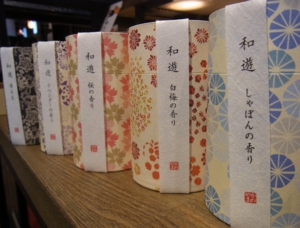 和遊
和遊
和遊
桜の香り
和遊
白梅の香り
和遊
しゃぼんの香り